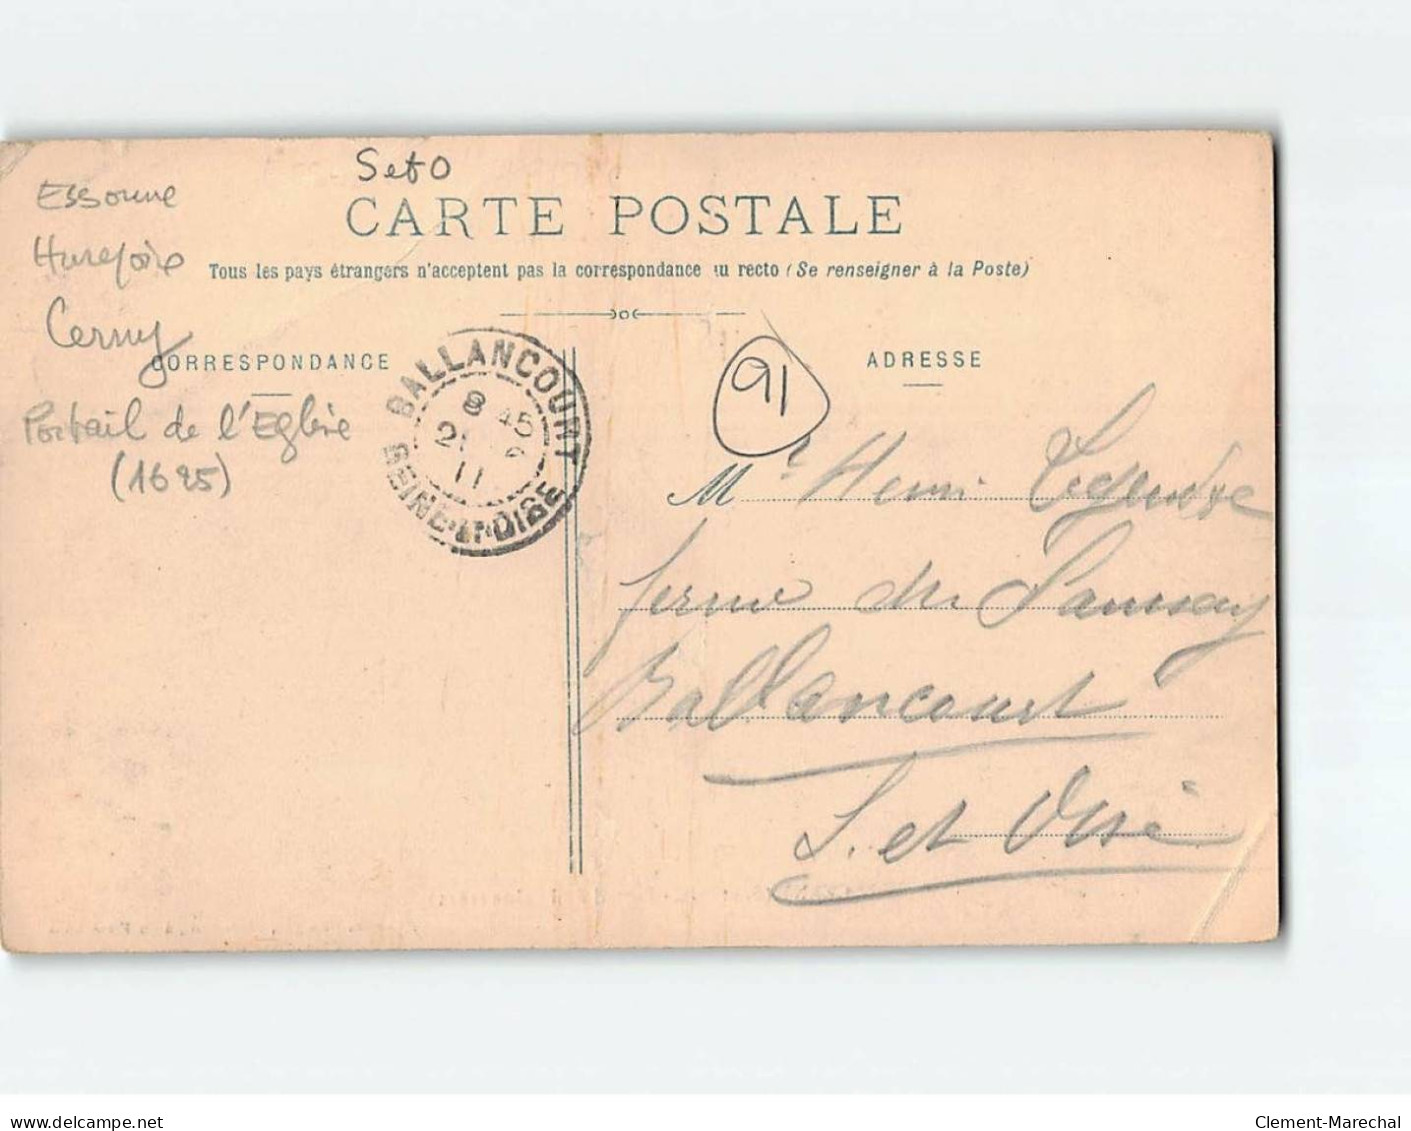 Set O
Essonne
Hurepoix
Cerny
Portail de l'Eglise
(1625)
CARTE POSTALE
Tous les pays étrangers n'acceptent pas la correspondance au recto (Se renseigner à la Poste)
CORRESPONDANCE
ADRESSE
BALLANCOURT
8 45
11
SEINE-ET-OISE
91
Mr Henri Legendre
ferme du Saussay
Ballancourt
S. et Oise
www.delcampe.net
Clement-Marechal